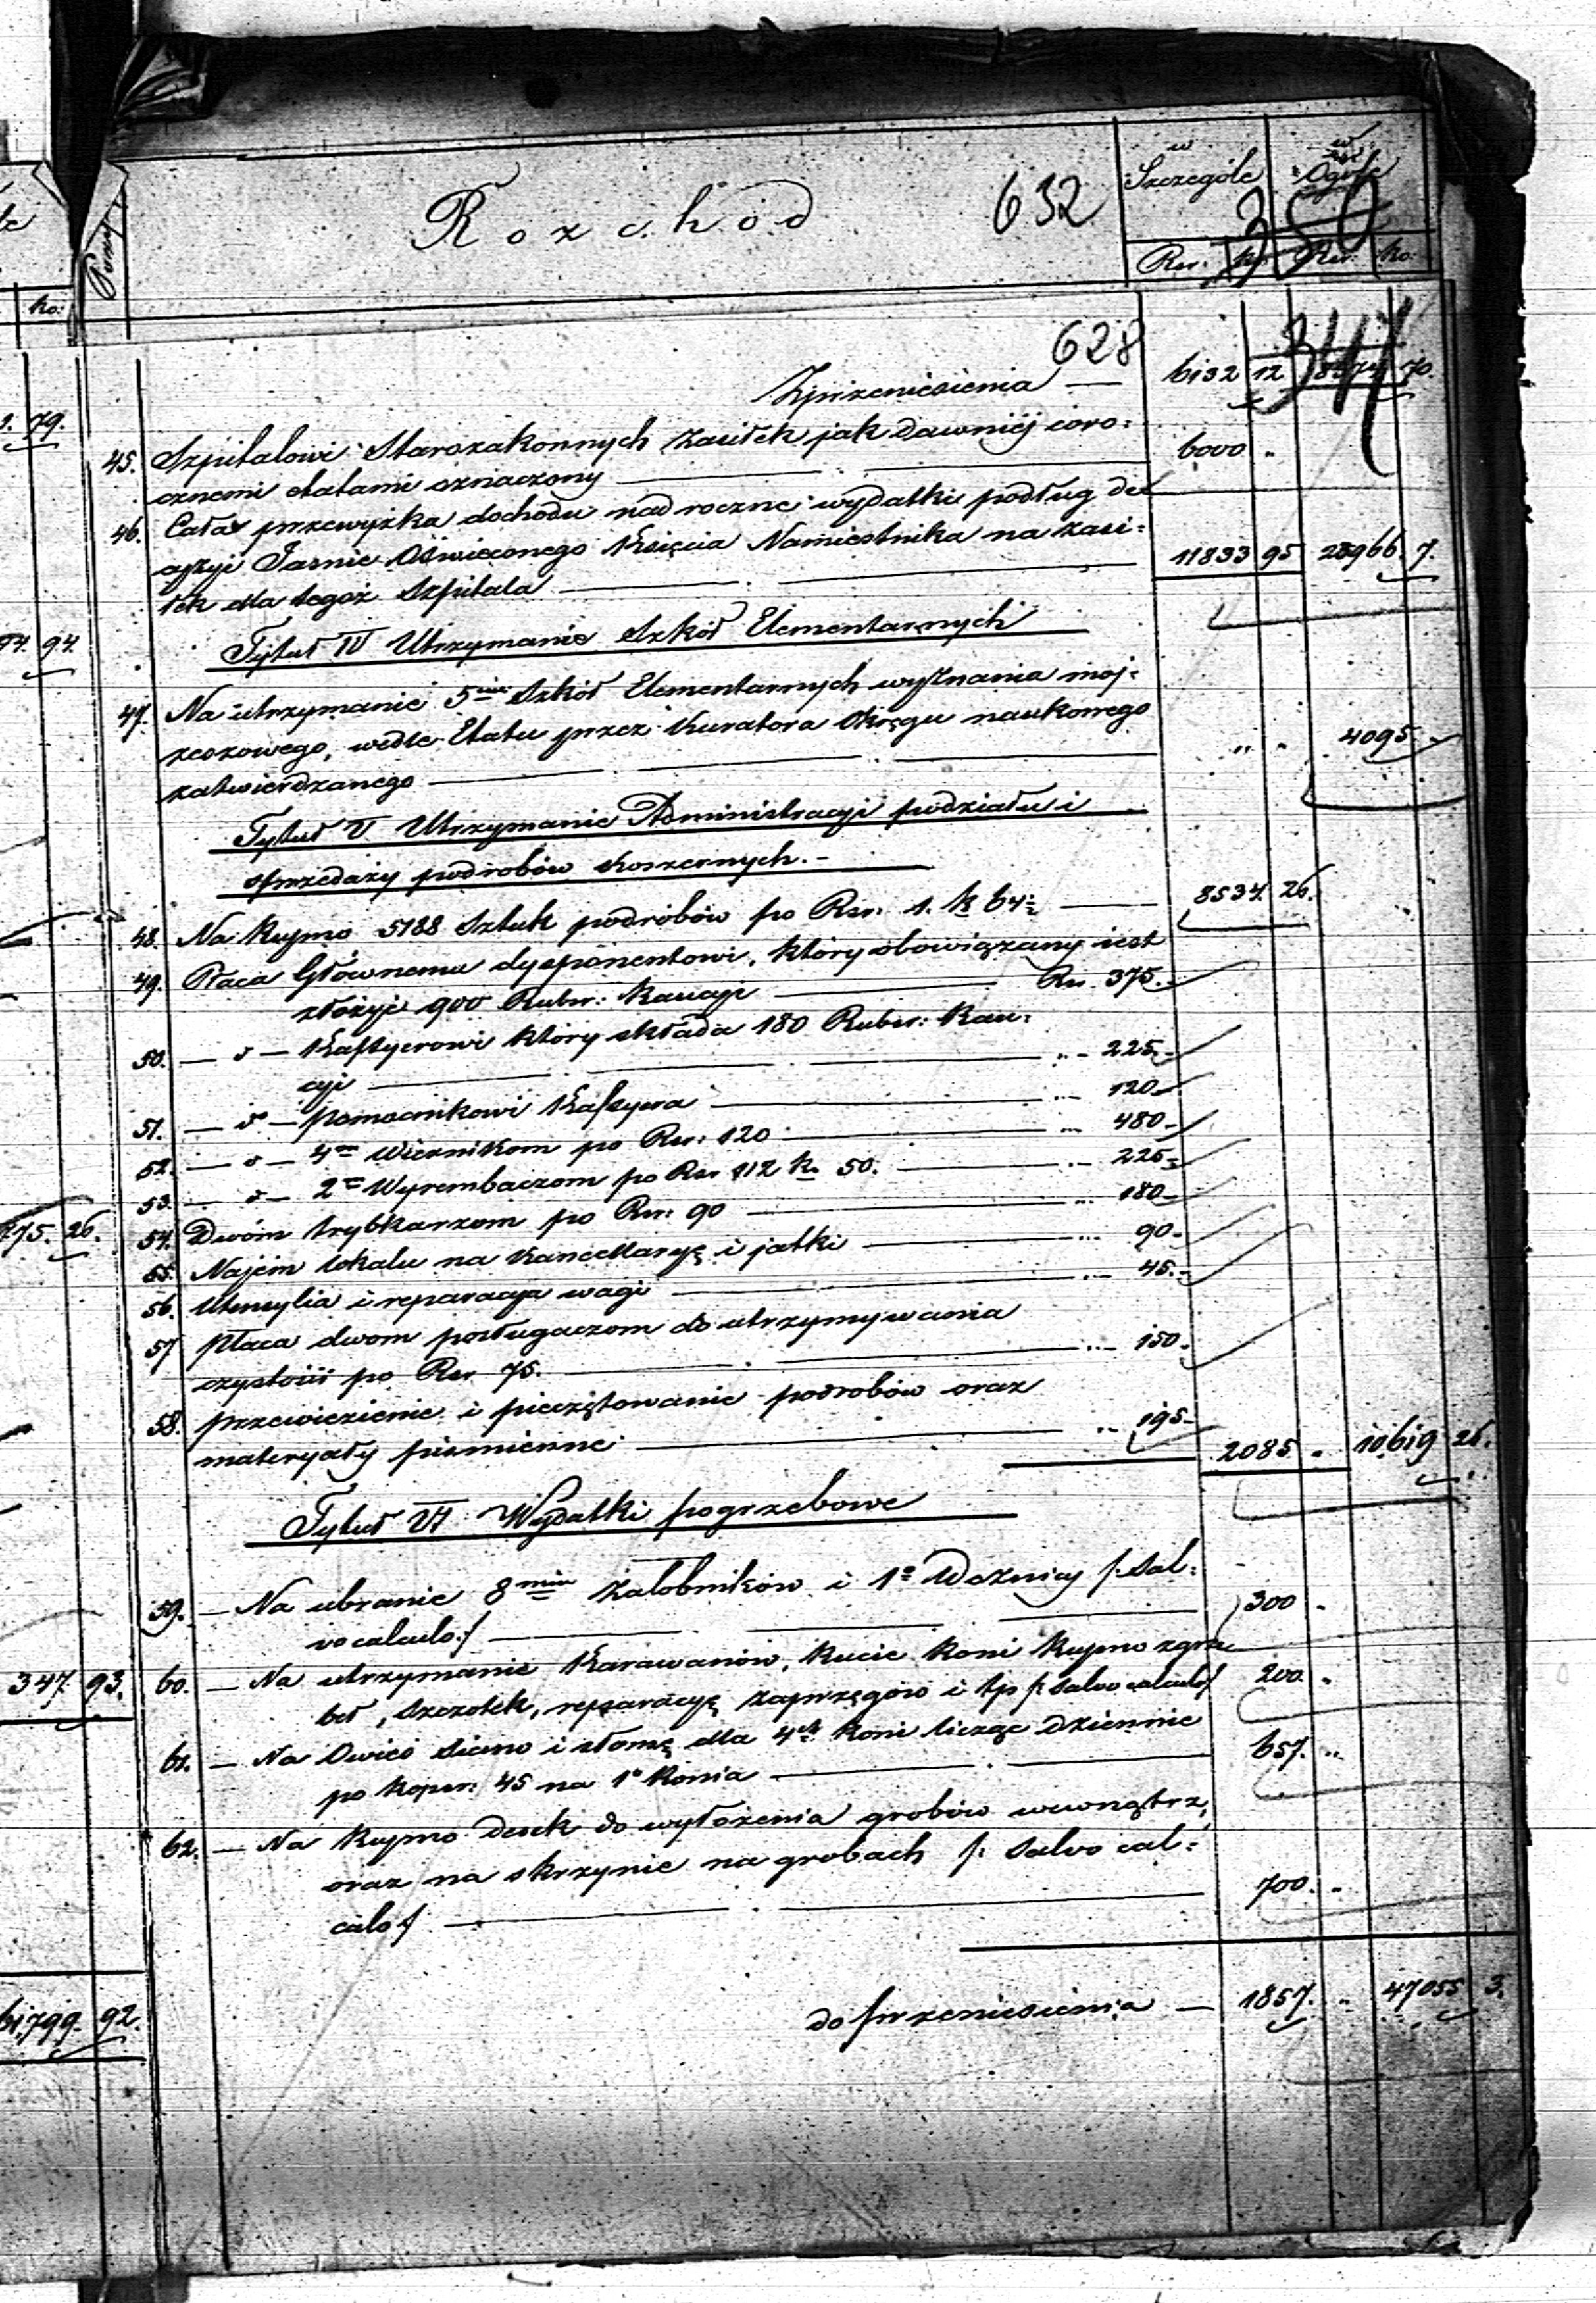 w Szczególe
w Ogóle
Rozchód
632
350
Pozy
Rsr. k. Rsr. ko:
ko:
628
344
Zprzeniesienia — 6132 12 8374 70.
9. 79.
45. Szpitalowi Starozakonnych zasiłek jak dawniéj coro=
cznemi etatami oznaczony — 6000 "
46. Cała przewyżka dochodu nad roczne wydatki podług de=
cyzyi Jaśnie Oświeconego Księcia Namiestnika na zasi=
łek dla tegoż Szpitala — 11833 95 23966. 7.
94. 94.
Tytuł IV Utrzymanie Szkół Elementarnych
47. Na utrzymanie 5ciu Szkół Elementarnych wyznania moj=
żeszowego, wedle Etatu przez Kuratora Okręgu naukowego
zatwierdzanego — " " 4095. -
Tytuł V. Utrzymanie Administracyi podziału i
sprzedaży podrobów koszernych. -
48. Na kupno 5188 Sztuk podrobów po Rsr. 1. k 64½ — 8534. 26.
49. Płaca Głównemu dysponentowi, który obowiązany iest
złożyć 900 Rubsr: Kaucyi — Rsr. 375. -
50. — " — Kassyerowi który składa 180 Rubsr: Kau=
cyi — " - 225. -
51. — " — pomocnikowi Kassyera — " 120 -
52. — " — 4m Wiernikom po Rsr: 120 — " 480 -
53. — " — 2m Wyrembaczom po Rsr 112 k. 50. — " 225 -
54. Dwóm trybkarzom po Rsr: 90 — " 180 -
275. 26.
55. Najem lokalu na Kancellaryę i jatki — " 90 -
56. Utensylia i reparacya wagi — " 45. -
57 Płaca dwom posługaczom do utrzymywania
czystości po Rsr 75. — " 150 -
58. przewiezienie i pieczętowanie podrobów oraz
materyały piśmienne — " 195 - 2085. " 10,619 26.
Tytuł VI Wydatki pogrzebowe
59. — Na ubranie 8miu żałobników i 1o Woźnicy /: Sal=
vo calculo :/ — 300 "
60. — Na utrzymanie Karawanów, kucie koni kupno zgrze
beł, szczotek, reparacyę zaprzęgów i tp /: Salvo calculo :/ 200. "
347. 93.
61. — Na Owies siano i słomę dla 4ch koni licząc dziennie
po kopsr: 45 na 1o Konia — 657. "
62. — Na kupno desek do wyłożenia grobów wewnątrz,
oraz na skrzynie na grobach /: Salvo cal=
culo :/ — 700. "
do przeniesienia — 1857. " 47055 3.
61,799. 92.